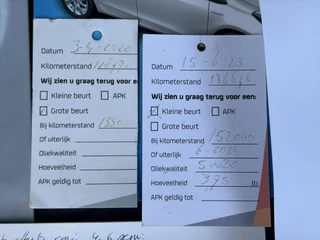 Datum 3-4-2020
Kilometerstand
Wij zien u graag terug voor e
Kleine beurt APK
Grote beurt
Bij kilometerstand
Of uiterlijk
Oliekwaliteit
Hoeveelheid
APK geldig tot
Datum 15-6-23
Kilometerstand
Wij zien u graag terug voor een:
Kleine beurt APK
Grote beurt
Bij kilometerstand 152000
Of uiterlijk 6-2024
Oliekwaliteit 5W30
Hoeveelheid 3,75 ltr.
APK geldig tot